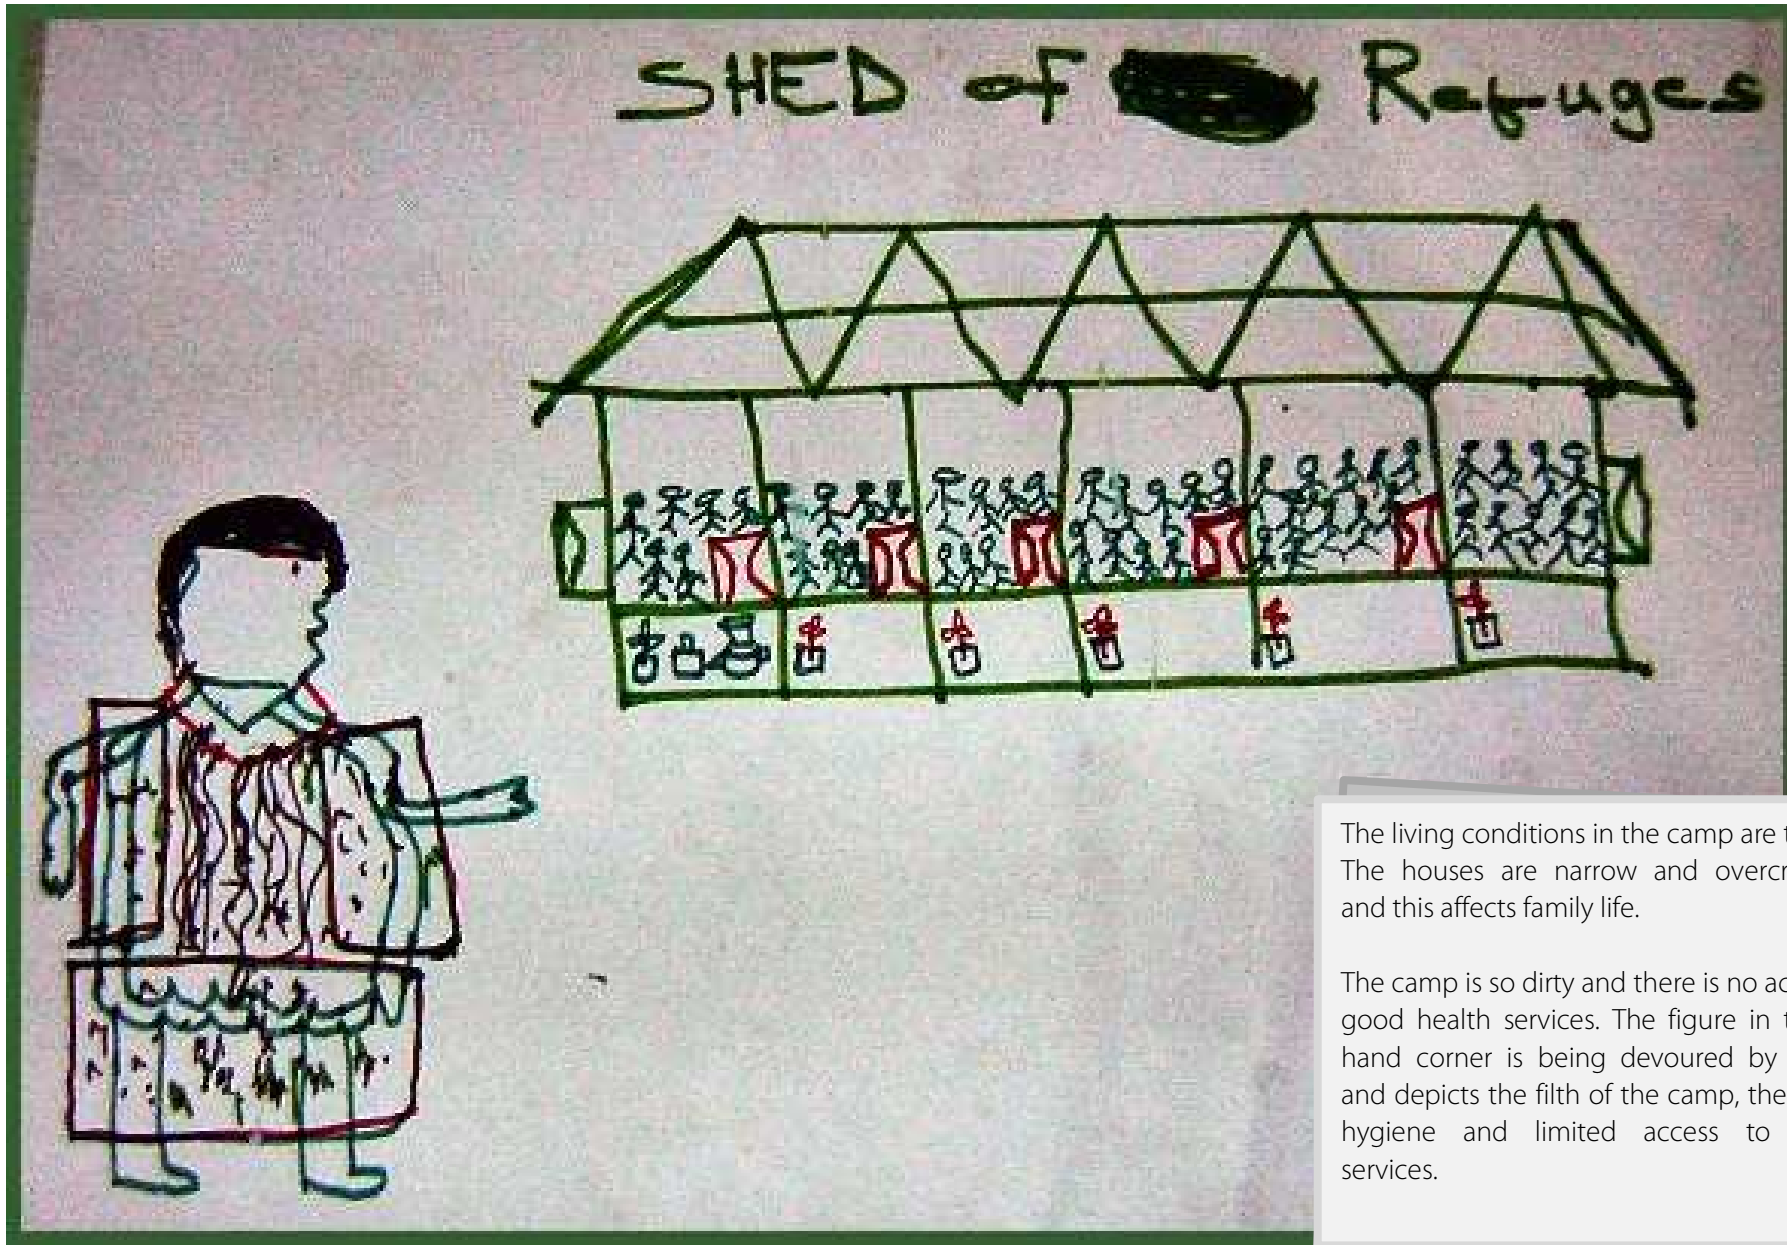 SHED of Refuges
The living conditions in the camp are
The houses are narrow and
and this affects family life.
The camp is so dirty and there is no
good health services. The figure in
hand corner is being devoured by
and depicts the filth of the camp, the
hygiene and limited access to
services.